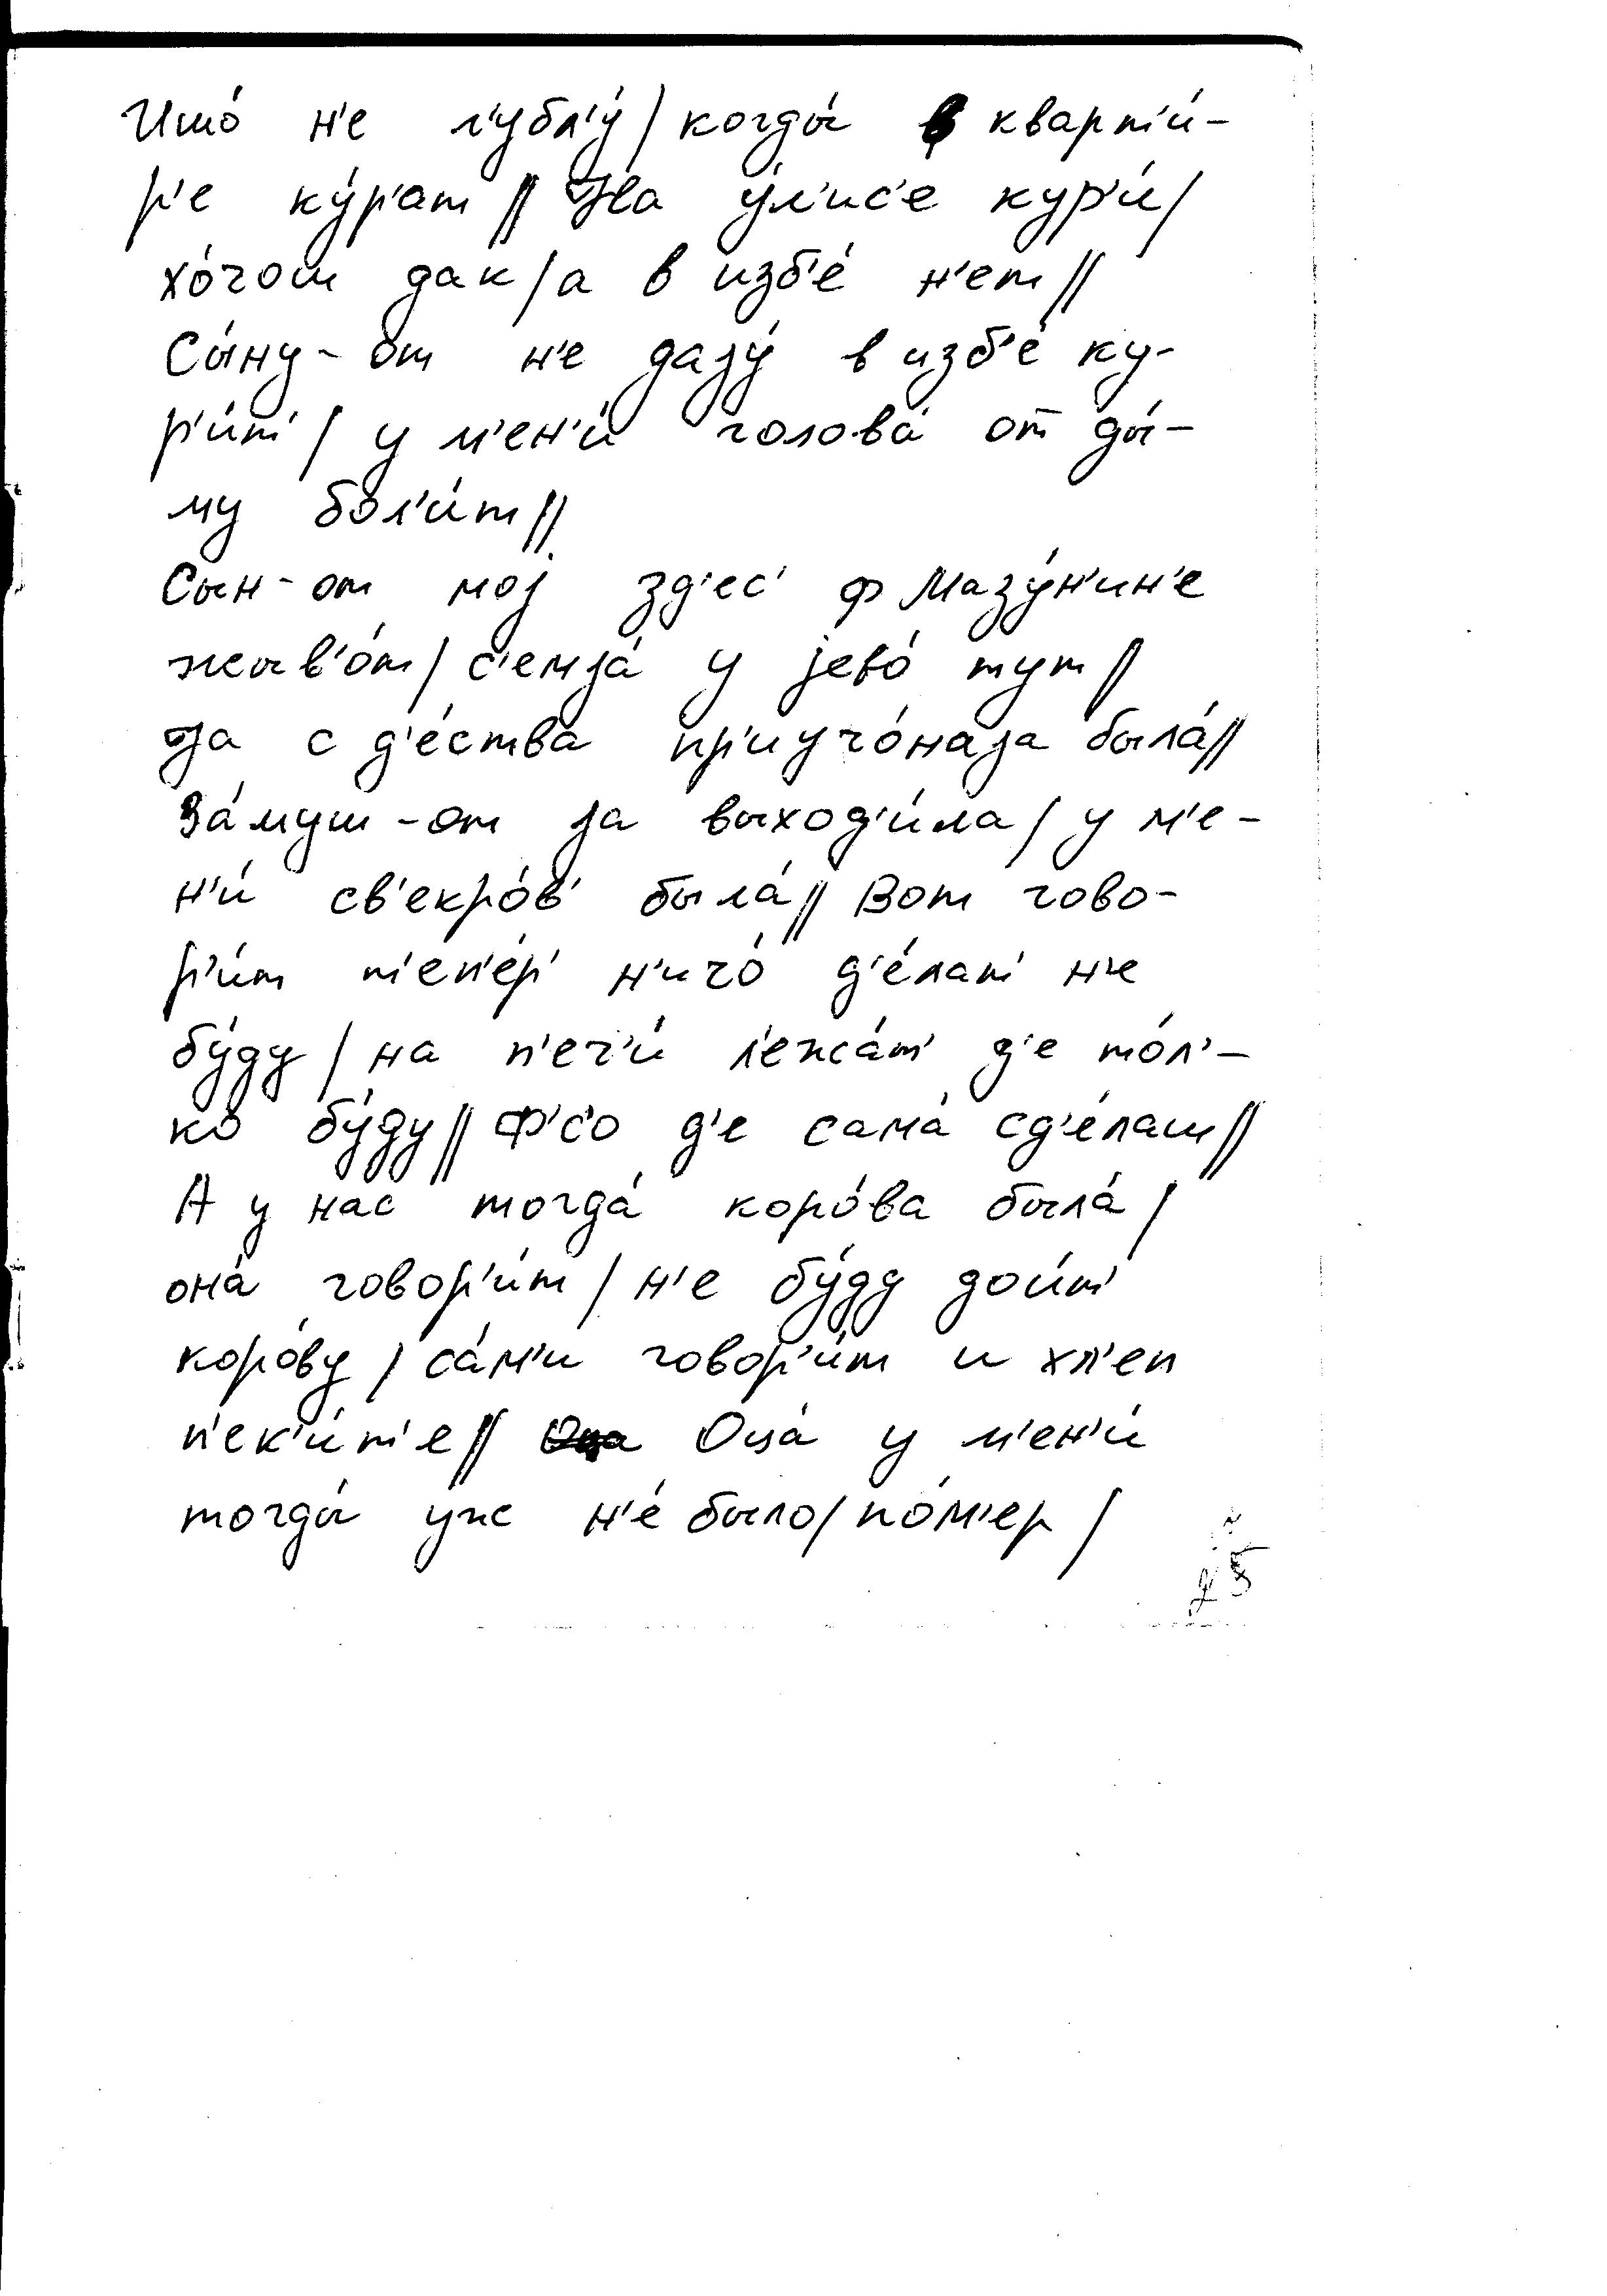 Ишо́ н'е л'убл'у́ / когды́ в кварт'и́-
р'е ку́р'ат // На у́л'ис'е кур'и́ /
хо́чош дак / а в изб'е́ н'ет //
Сы́ну-от н'е даjу́ в изб'е́ ку-
р'и́т' / у м'ен'и́ голова́ от ды́-
му бол'и́т //
Сын-от моj зд'ес' ф Мазу́н'ин'е
жыв'о́т / с'емjа́ у jево́ тут //
Jа с д'е́ства пр'иучо́наjа была́ //
За́муш-от jа выход'и́ла / у м'е-
н'и́ св'екро́в' была́ // Вот гово-
р'и́т т'еп'е́р' н'ичо́ д'е́лат' н'е
бу́ду / на п'еч'и́ л'ежа́т' д'е то́л'-
ко бу́ду // Ф'с'о д'е сама́ сд'е́лаш //
А у нас тогда́ коро́ва была́ /
она́ говор'и́т / н'е бу́ду дои́т'
коро́ву / са́м'и говор'и́т и хл'еп
п'ек'и́т'е // Оца́ у м'ен'и́
тогды́ уж н'е́ было / по́м'ер /
25